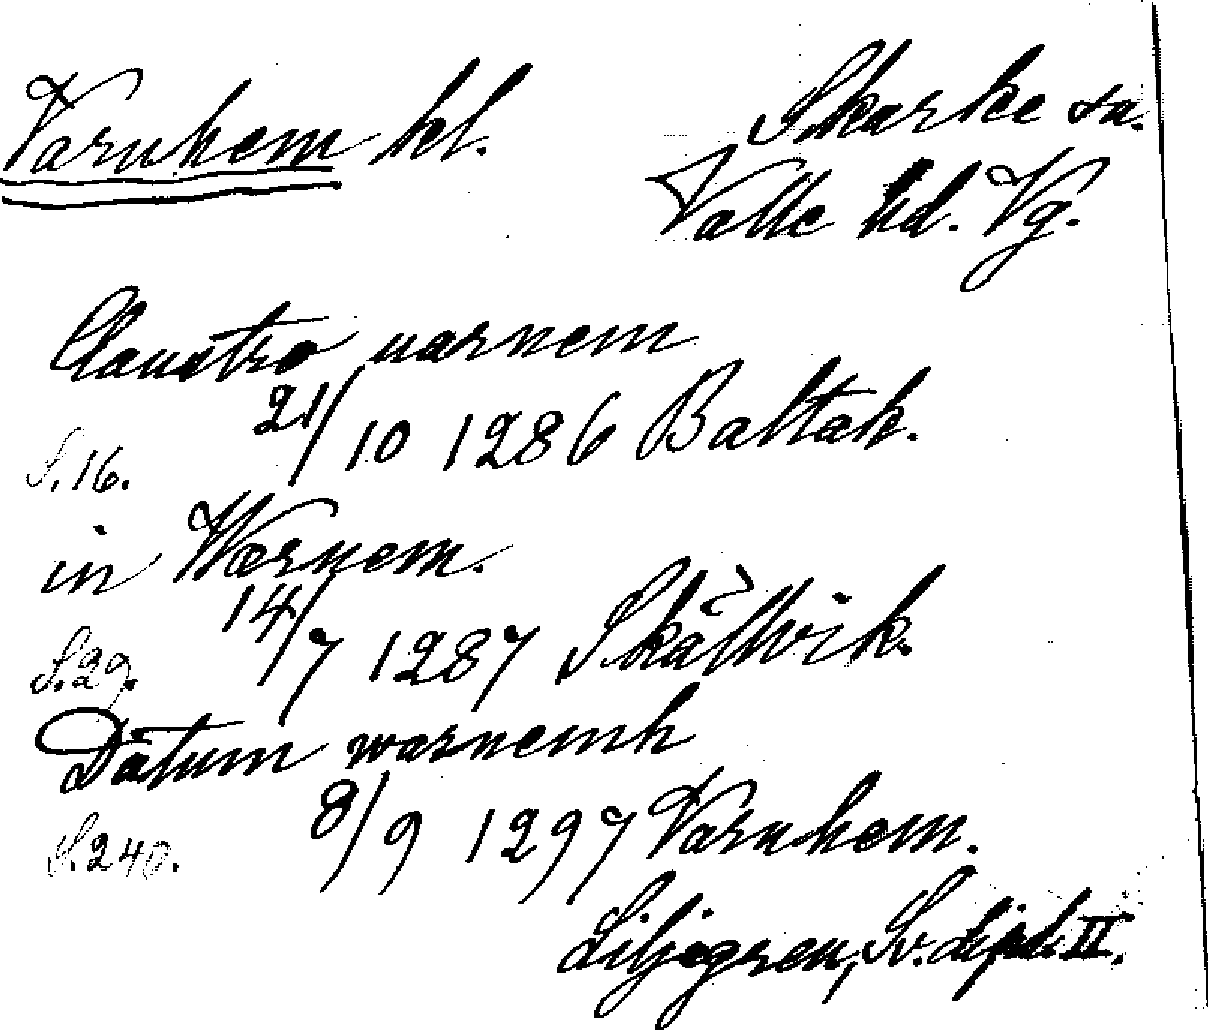 Varnhem kl.
Skarke sn.
Valle hd. Vg.
Claustro uarnem
21/10 1286 Baltak.
S. 16.
in Wærnem.
14/7 1287 Skällvik.
S. 29.
Datum warnemh
8/9 1297 Varnhem.
S. 240.
Liljegren, Sv. dipl. II.